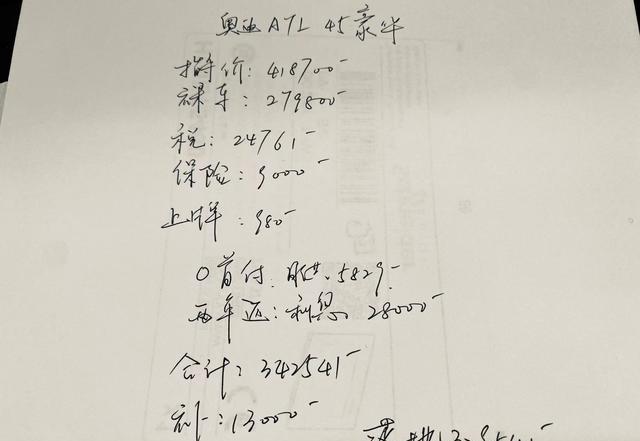 奥迪 A7L 45豪华
指导价: 418700
裸车: 279800
税: 24761
保险: 9000
上牌: 980
0首付: 月供: 5829
两年还: 利息 28000
合计: 342541
补: 13000
落地